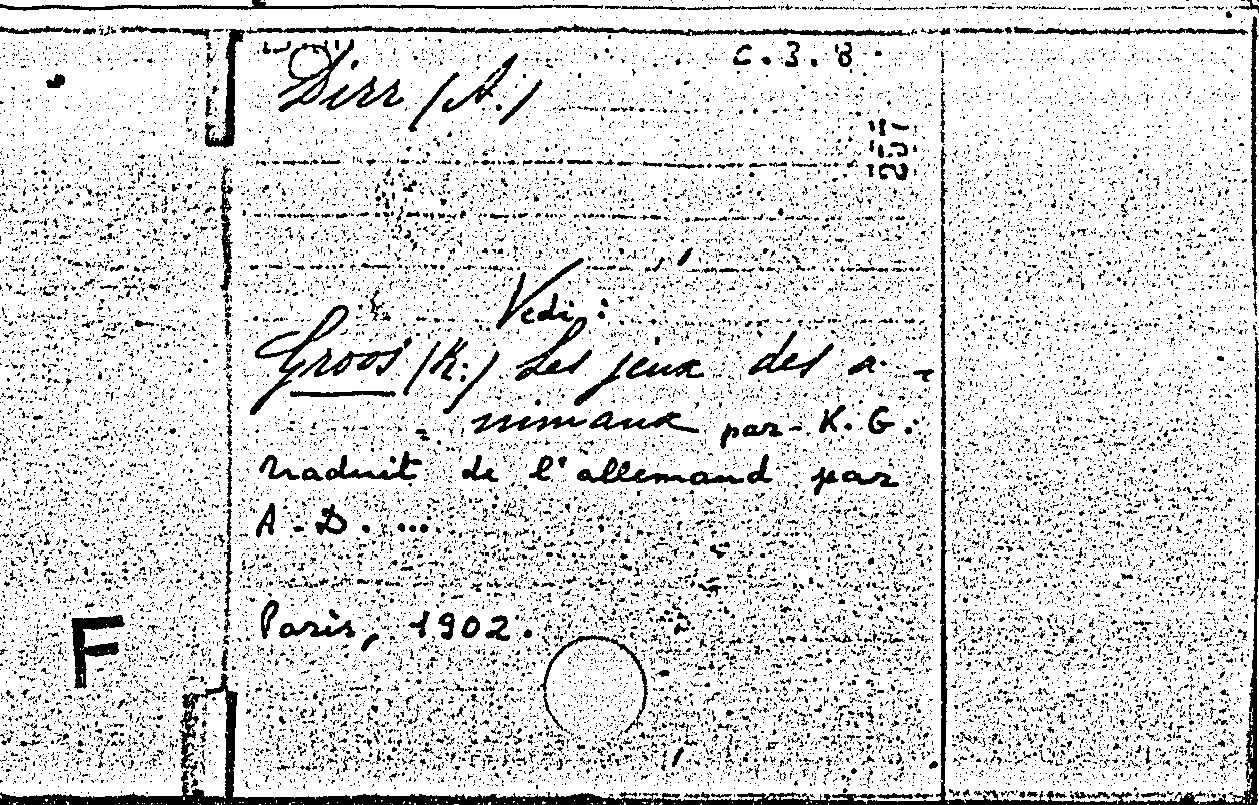 C.3.8.
Dirr (A.)
Vedi:
Groos (K.) Les jeux des a-
nimaux par K.G.
traduit de l'allemand par
A-D. ....
Paris, 1902.
F